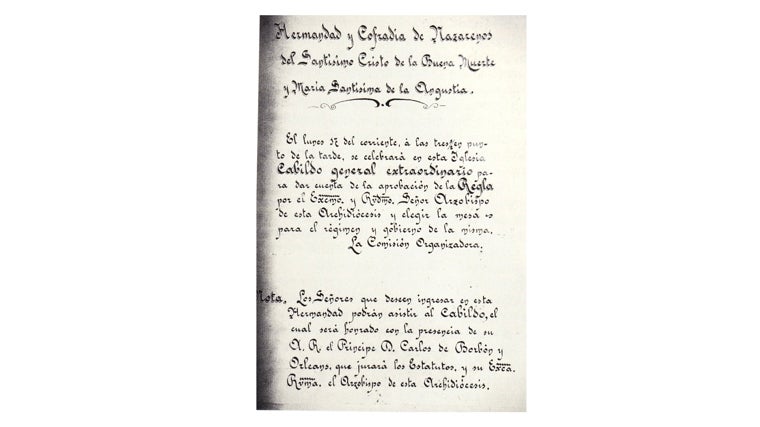 Hermandad y Cofradía de Nazarenos
del Santísimo Cristo de la Buena Muerte
y María Santísima de la Angustia.
El lunes del corriente, á las tres en pun-
to de la tarde, se celebrará en esta Iglesia
Cabildo general extraordinario pa-
ra dar cuenta de la aprobación de la Regla
por el Excmo. y Rvdmo. Señor Arzobispo
de esta Archidiócesis y elegir la mesa
para el régimen y gobierno de la misma.
La Comisión Organizadora.
Nota. Los Señores que deseen ingresar en esta
Hermandad podrán asistir al Cabildo, el
cual será honrado con la presencia de su
A. R. el Príncipe D. Carlos de Borbón y
Orleans, que jurará los Estatutos, y su Excca.
Rvma. el Arzobispo de esta Archidiócesis.